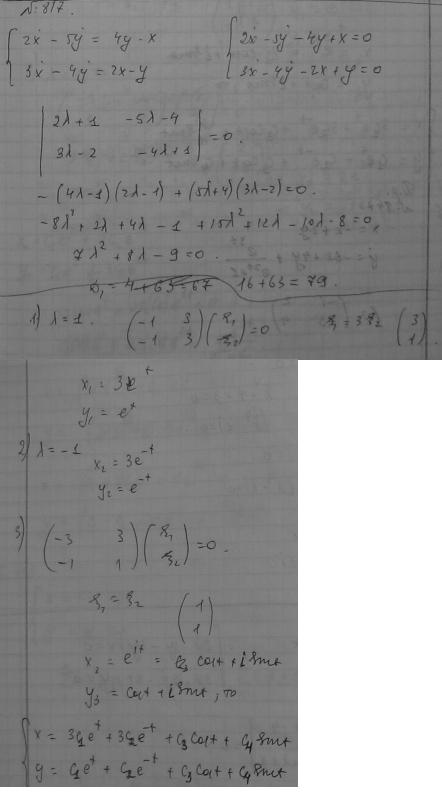 № 817.
{ 2ẋ - 5ẏ = 4y - x { 2ẋ - 5ẏ - 4y + x = 0
{ 3ẋ - 4ẏ = 2x - y { 3ẋ - 4ẏ - 2x + y = 0
| 2λ+1 -5λ-4 |
| 3λ-2 -4λ+1 | = 0.
- (4λ-1)(2λ-1) + (5λ+4)(3λ-2) = 0.
-8λ² + 2λ + 4λ - 1 + 15λ² + 12λ - 10λ - 8 = 0,
7λ² + 8λ - 9 = 0.
= 4 + 63 = 67 16 + 63 = 79.
1) λ = 1. (-1 3) (ξ₁) ξ₁ = 3ξ₂ (3)
(-1 3) (ξ₂) = 0 (1).
x₁ = 3e^t
y₁ = e^t
2) λ = -1
x₂ = 3e^-t
y₂ = e^-t
3) (-3 3) (ξ₁)
(-1 1) (ξ₂) = 0.
ξ₁ = ξ₂ (1)
(1)
= e^it = cost + i sint
y₃ = cost + i sint, то
{ x = 3c₁e^t + 3c₂e^-t + c₃cost + c₄sint
{ y = c₁e^t + c₂e^-t + c₃cost + c₄sint